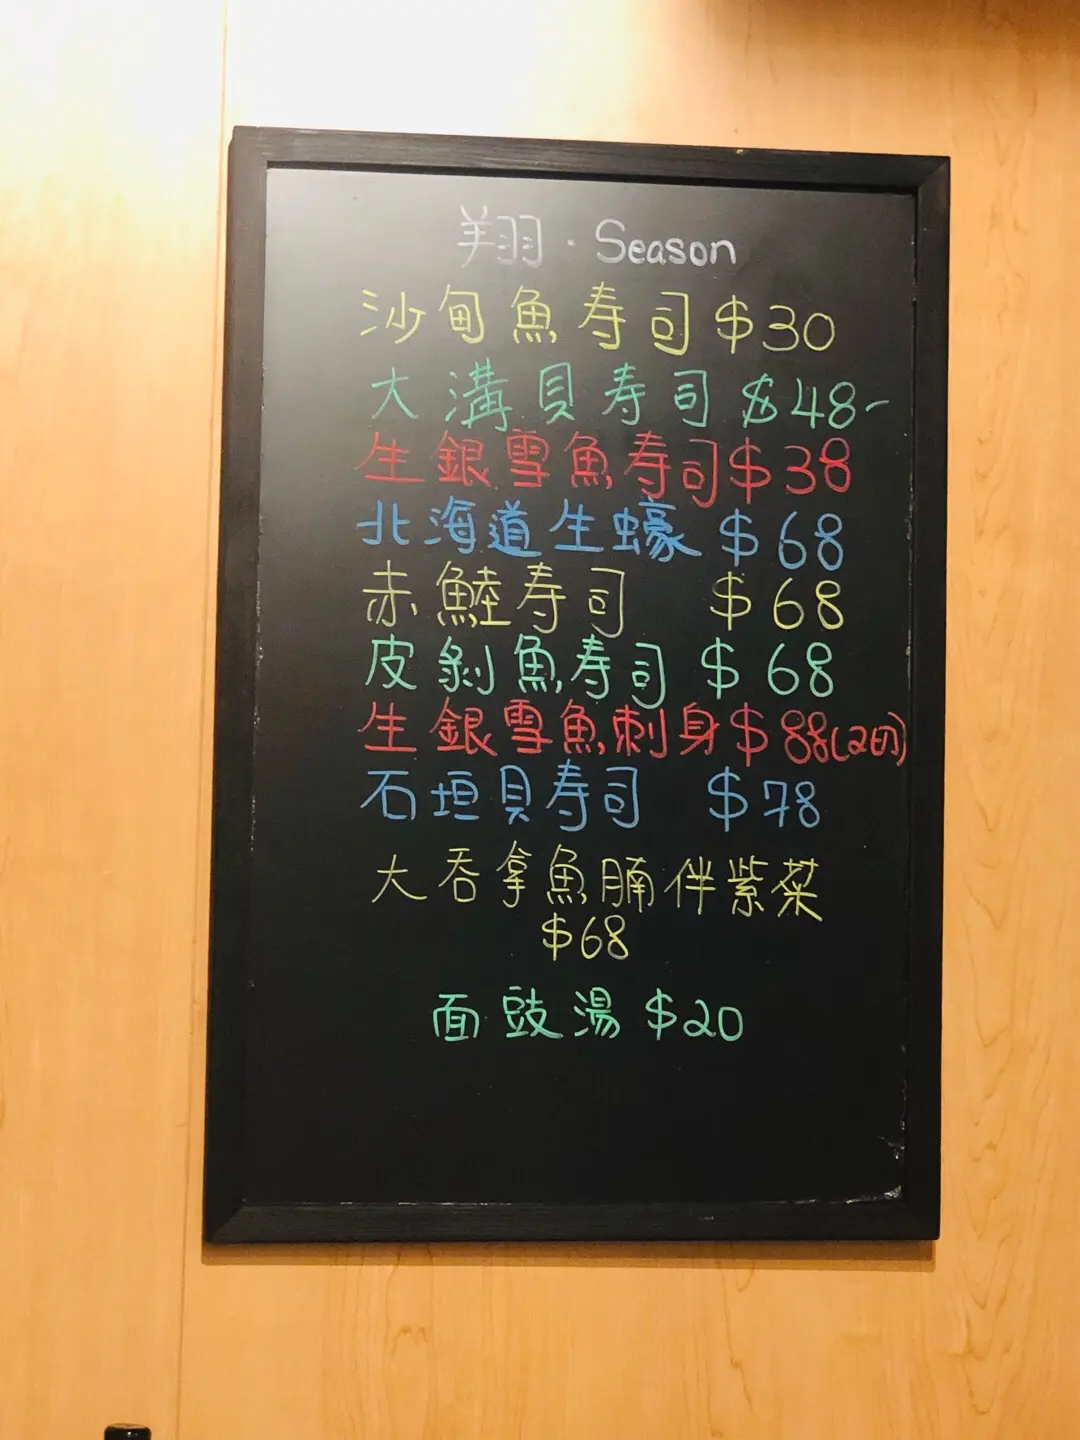 翔 · Season
沙甸魚寿司 $30
大溝貝寿司 $48-
生銀雪魚寿司 $38
北海道生蠔 $68
赤鯥寿司 $68
皮剝魚寿司 $68
生銀雪魚刺身 $88(2切)
石垣貝寿司 $78
大吞拿魚腩伴紫菜
$68
面豉湯 $20